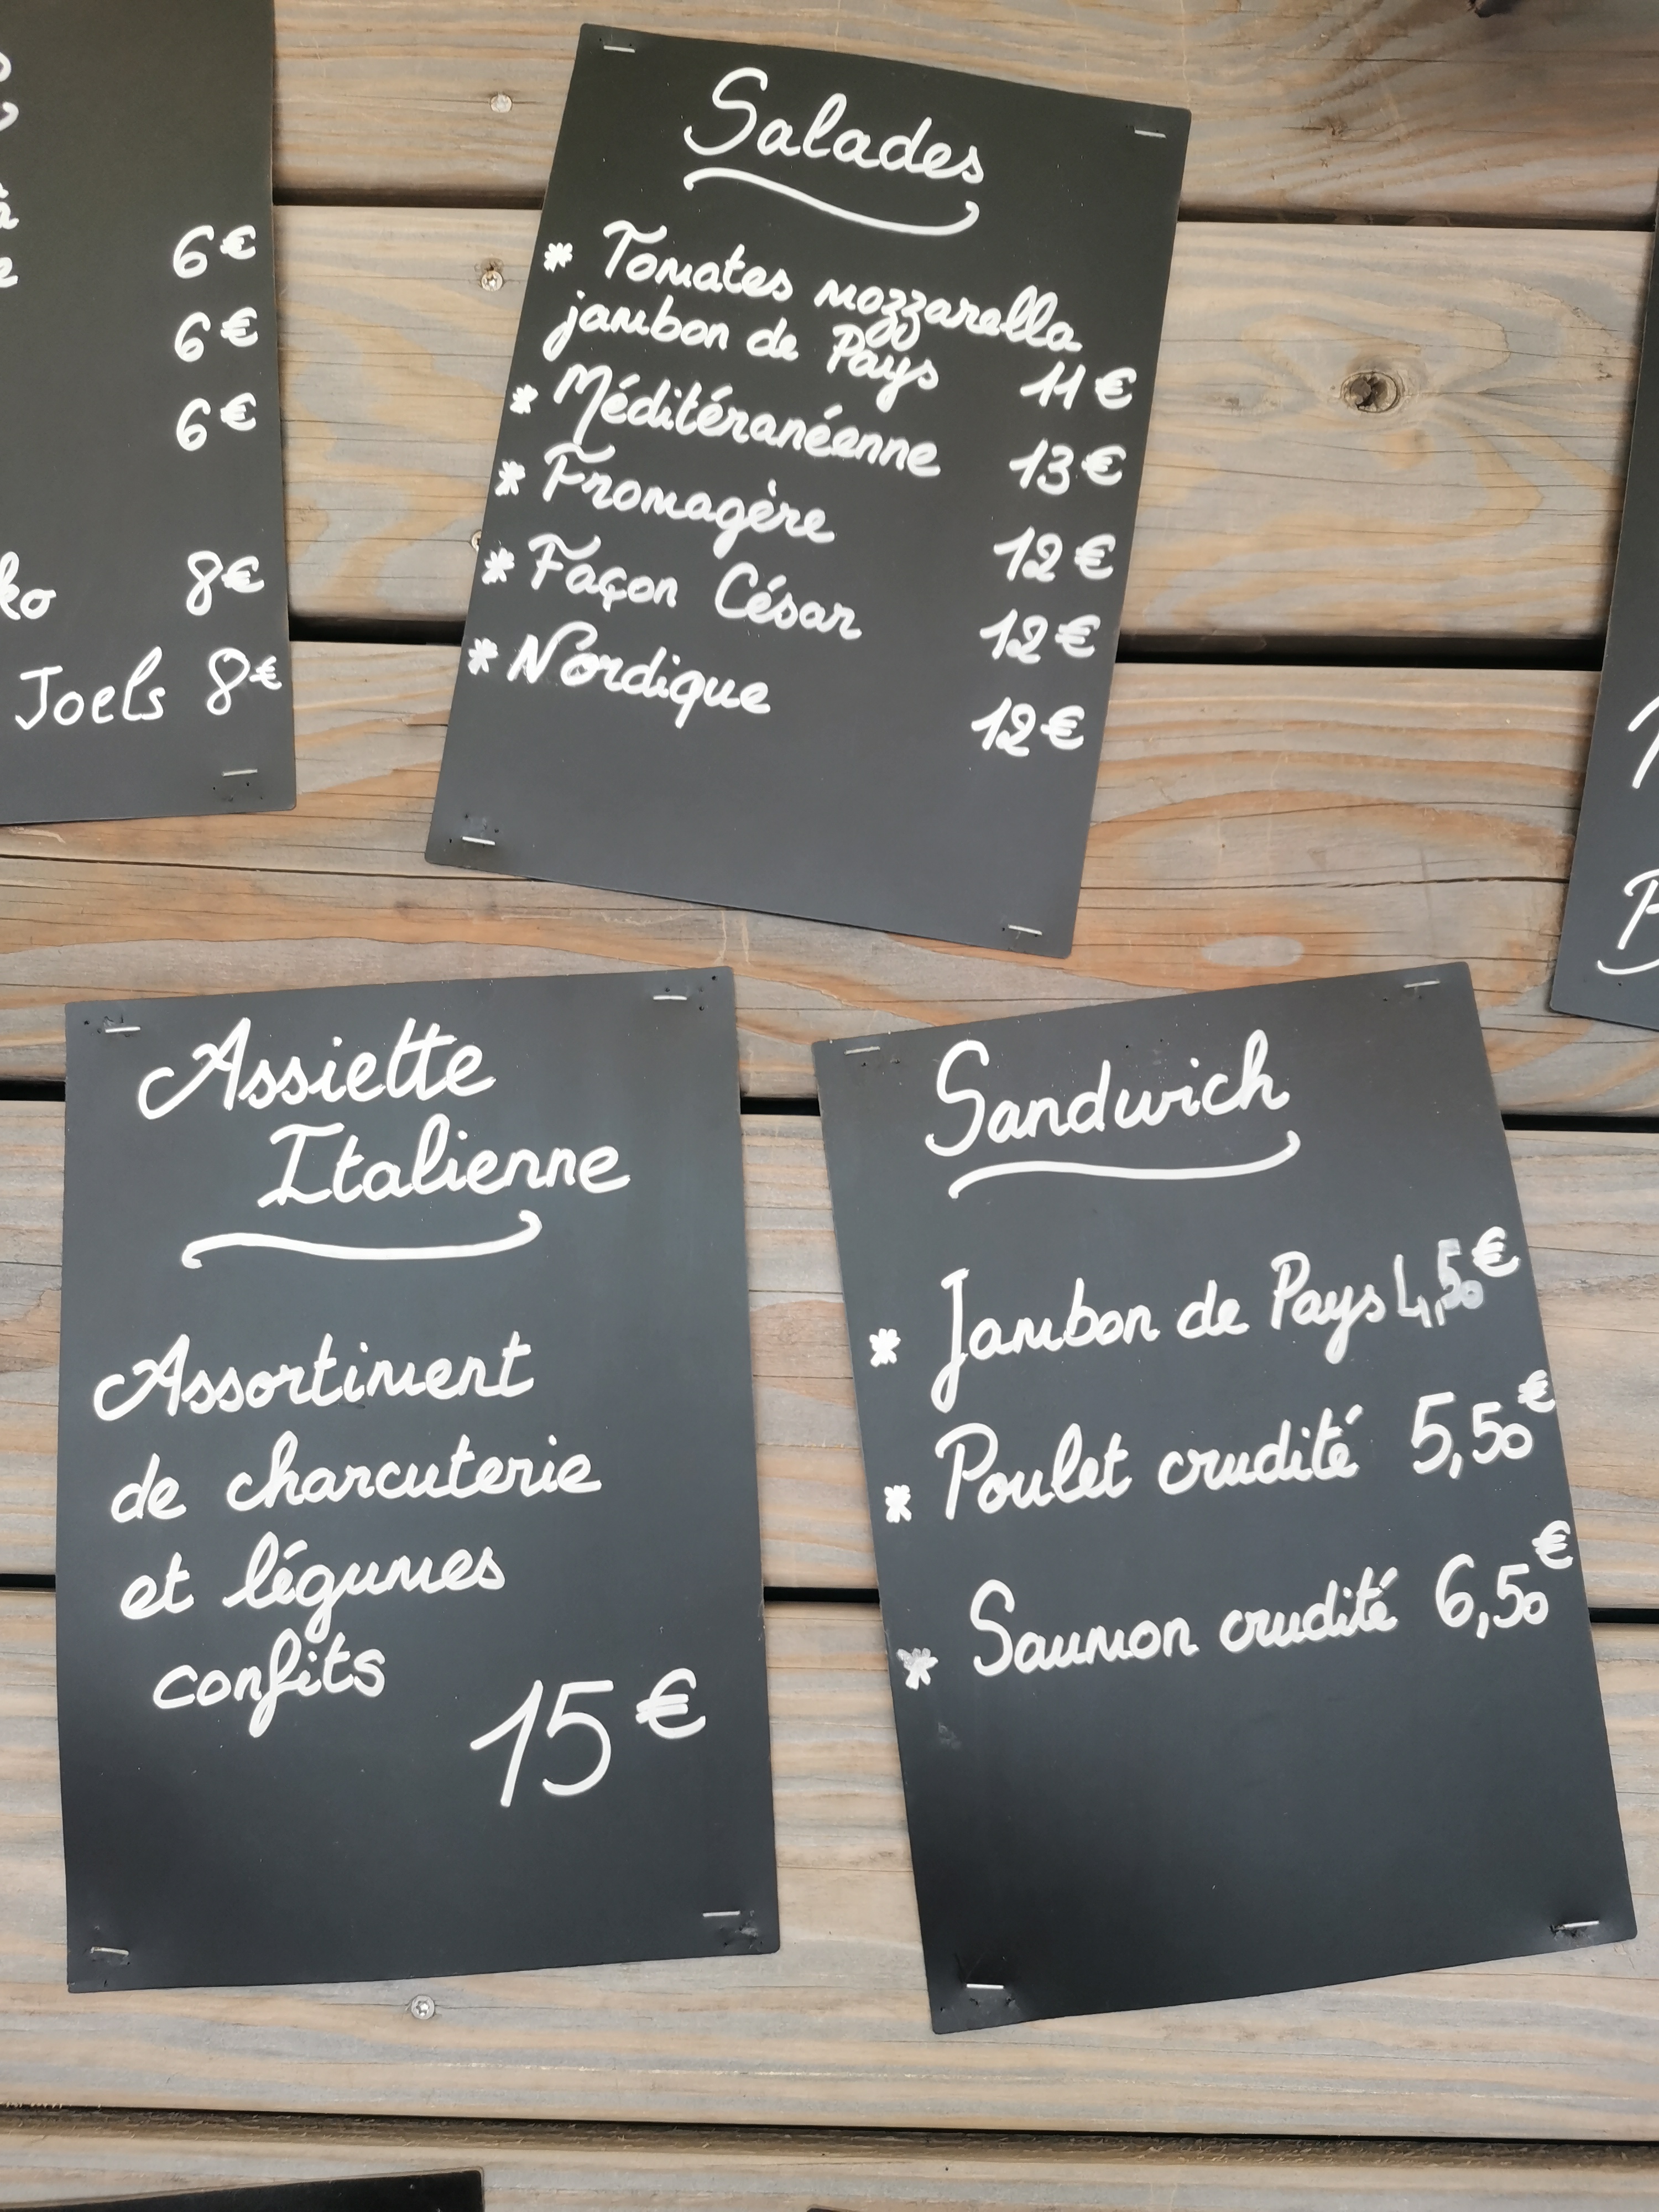 6€
6€
6€
8€
Joels 8€
Salades
* Tomates mozzarella
jambon de Pays 11€
* Méditéranéenne 13€
* Fromagère 12€
* Façon César 12€
* Nordique 12€
Assiette
Italienne
Assortiment
de charcuterie
et légumes
confits
15€
Sandwich
* Jambon de Pays 4,50€
* Poulet crudité 5,50€
* Saumon crudité 6,50€